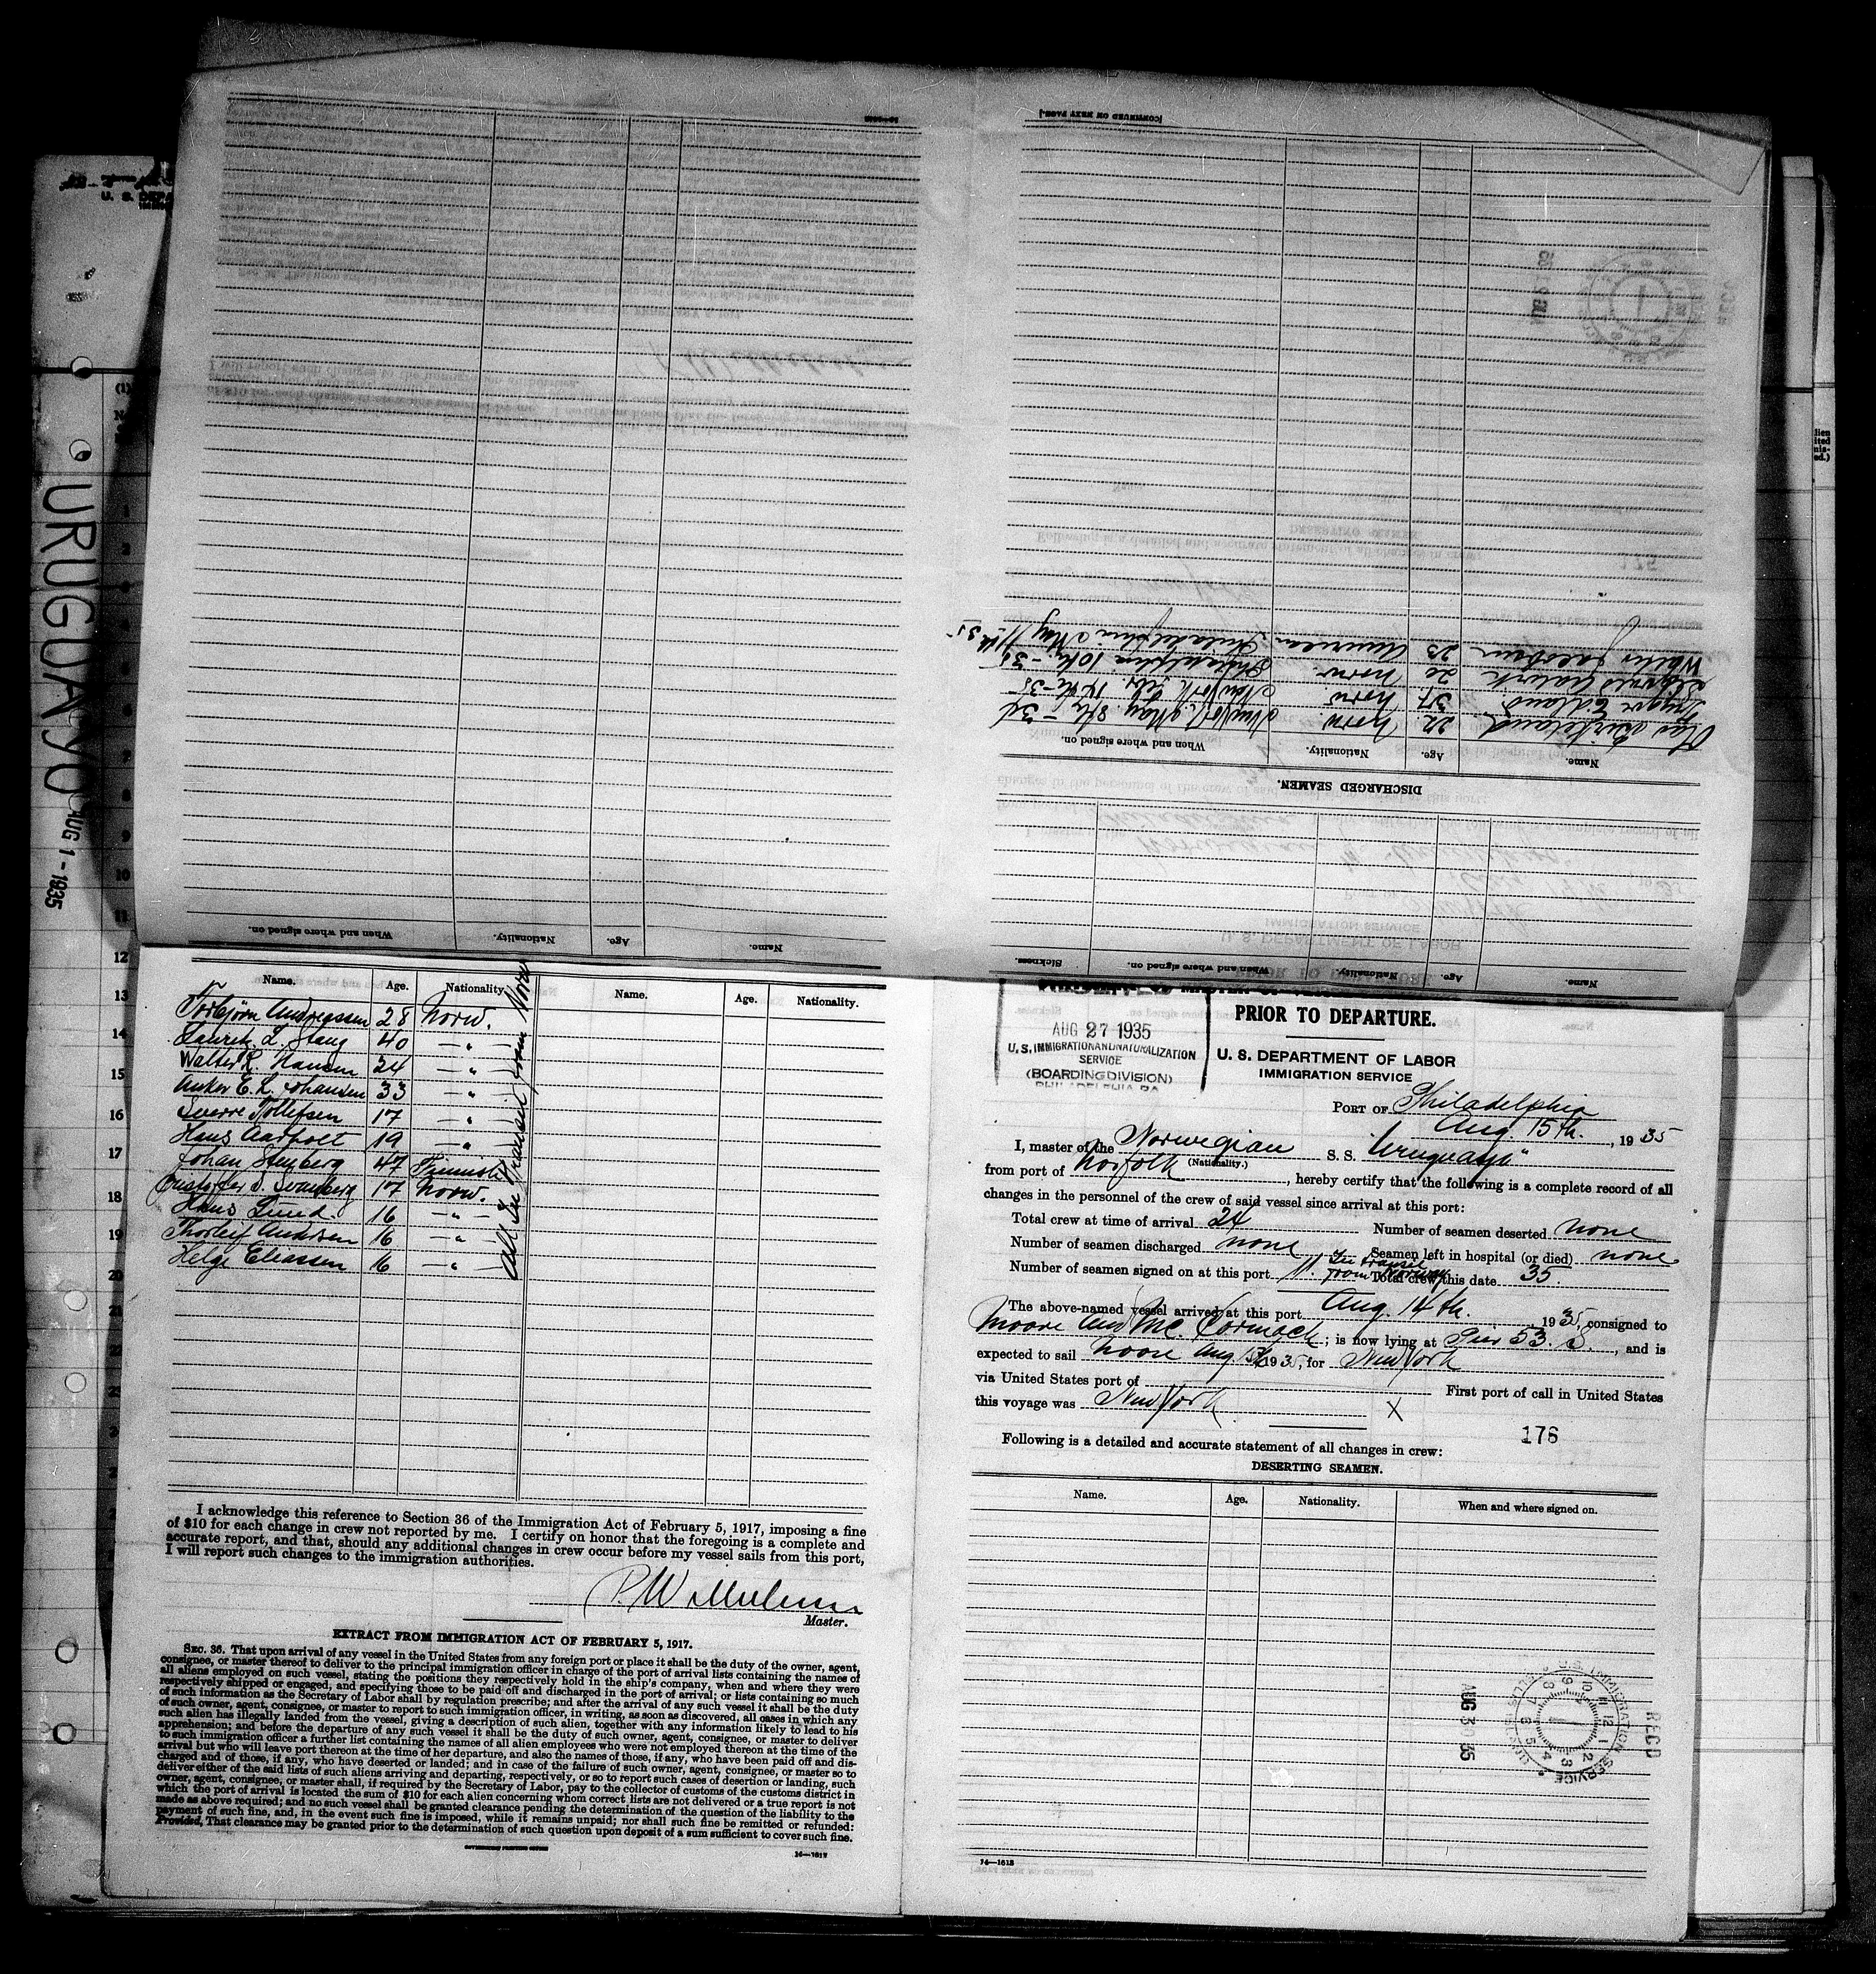 URUGUAYO AUG 1 - 1935
[CONTINUED ON NEXT PAGE.]
When and where signed on. Nationality. Age. Name.
Sickness. When and where signed on. Nationality. Age. Name.
DISCHARGED SEAMEN.
Name. Age. Nationality. When and where signed on.
22 Norw. New York May 8th - 34
Edland 37 Norw. New York 14th - 35
20 Norw. Philadelphia 10th - 35
Walter Jacobsen 23 American Philadelphia May 11th 35
Name. Age. Nationality. Name. Age. Nationality.
Torbjørn Andreassen 28 Norw.
Laurits L. Stang 40 - " -
Walter L. Hansen 24 - " -
Anker E. L. Johansen 33 - " -
Sverre Tollefsen 17 - " -
Hans Aarholt 19 - " -
Johan Stenberg 47 Finnish
17 Norw.
Hans Lund. 16 - " -
Thorleif Andersen 16 - " -
Helge Eliassen 16 - " -
All In Transit from Norw
I acknowledge this reference to Section 36 of the Immigration Act of February 5, 1917, imposing a fine
of $10 for each change in crew not reported by me. I certify on honor that the foregoing is a complete and
accurate report, and that, should any additional changes in crew occur before my vessel sails from this port,
I will report such changes to the immigration authorities.
Master.
EXTRACT FROM IMMIGRATION ACT OF FEBRUARY 5, 1917.
SEC. 36. That upon arrival of any vessel in the United States from any foreign port or place it shall be the duty of the owner, agent,
consignee, or master thereof to deliver to the principal immigration officer in charge of the port of arrival lists containing the names of
all aliens employed on such vessel, stating the positions they respectively hold in the ship's company, when and where they were
respectively shipped or engaged, and specifying those to be paid off and discharged in the port of arrival; or lists containing so much
of such information as the Secretary of Labor shall by regulation prescribe; and after the arrival of any such vessel it shall be the duty
of such owner, agent, consignee, or master to report to such immigration officer, in writing, as soon as discovered, all cases in which any
such alien has illegally landed from the vessel, giving a description of such alien, together with any information likely to lead to his
apprehension; and before the departure of any such vessel it shall be the duty of such owner, agent, consignee, or master to deliver
to such immigration officer a further list containing the names of all alien employees who were not employed thereon at the time of the
arrival but who will leave port thereon at the time of her departure, and also the names of those, if any, who have been paid off and dis-
charged and of those, if any, who have deserted or landed; and in case of the failure of such owner, agent, consignee, or master so to
deliver either of the said lists of such aliens arriving and departing, respectively, or so to report such cases of desertion or landing, such
owner, agent, consignee, or master shall, if required by the Secretary of Labor, pay to the collector of customs of the customs district in
which the port of arrival is located the sum of $10 for each alien concerning whom correct lists are not delivered or a true report is not
made as above required; and no such vessel shall be granted clearance pending the determination of the question of the liability to the
payment of such fine, and, in the event such fine is imposed, while it remains unpaid; nor shall such fine be remitted or refunded:
Provided, That clearance may be granted prior to the determination of such question upon deposit of a sum sufficient to cover such fine.
GOVERNMENT PRINTING OFFICE 14—1617
AUG 27 1935
U. S. IMMIGRATION AND NATURALIZATION
SERVICE
(BOARDING DIVISION)
PHILADELPHIA PA
PRIOR TO DEPARTURE.
U. S. DEPARTMENT OF LABOR
IMMIGRATION SERVICE
PORT OF Philadelphia
Aug. 15th. , 19 35
I, master of the Norwegian S. S. "Uruguayo"
(Nationality.)
from port of Norfolk , hereby certify that the following is a complete record of all
changes in the personnel of the crew of said vessel since arrival at this port:
Total crew at time of arrival 24 Number of seamen deserted none
Number of seamen discharged none Seamen left in hospital (or died) none
Number of seamen signed on at this port 11. In transit from Norway Total crew this date 35.
The above-named vessel arrived at this port Aug. 14th. 1935, consigned to
Moore and Mc. Cormack ; is now lying at Pier 53. S. , and is
expected to sail Noon Aug. 15th 1935, for New York
via United States port of First port of call in United States
this voyage was New York X
176
Following is a detailed and accurate statement of all changes in crew:
DESERTING SEAMEN.
Name. Age. Nationality. When and where signed on.
U. S. IMMIGRATION SERVICE
REC'D
AUG 31 35
14—1618